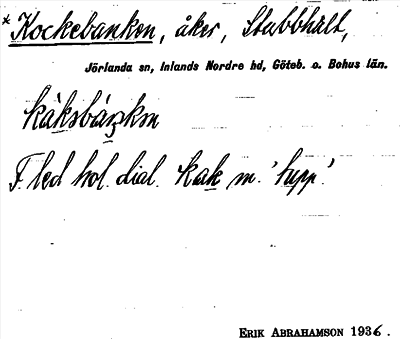 * Kockebanken, åker, Stubbhält,
Jörlanda sn, Inlands Nordre hd, Göteb. o. Bohus län.
kåksbáŋkən
F. led hol. dial. kak m. 'tupp'.
ERIK ABRAHAMSON 1936.